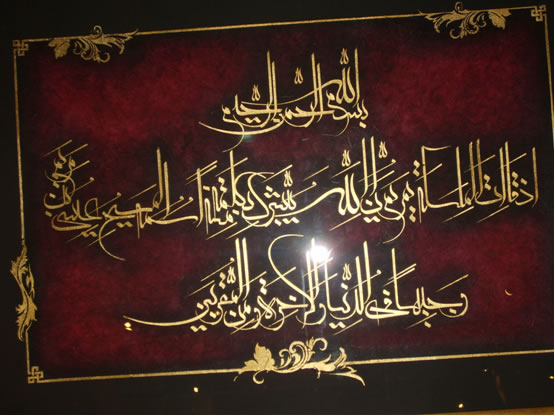 بسم الله الرّحمن الرّحيم
اذ قالت الملئكة يمريم إنّ اللّه يبشّرك بكلمة منه اسمه المسيح عيسى ابن مريم
وجيها في الدّنيا والاخرة ومن المقرّبين